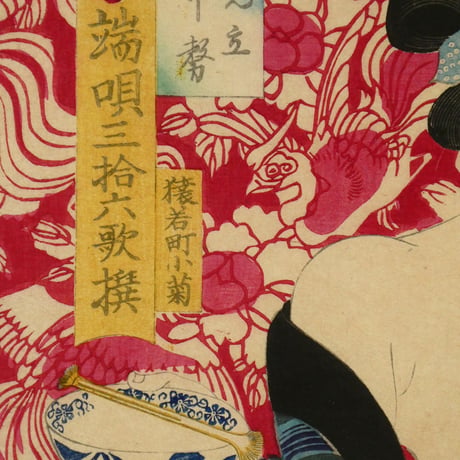 立
勢
端唄三拾六歌撰
猿若町小菊